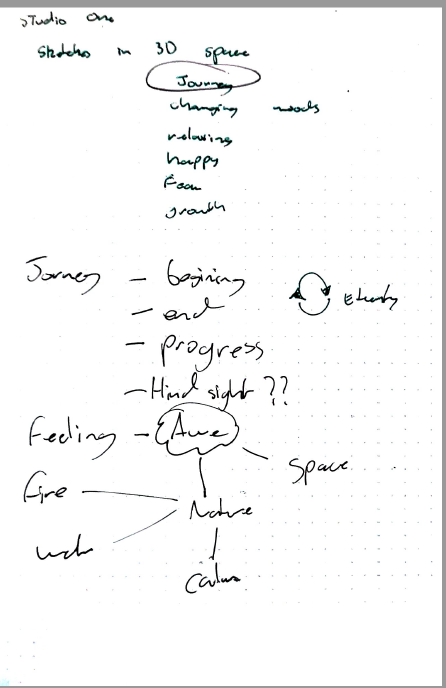 Studio One
Sketches in 3D space
Journey
changing moods
relaxing
happy
Fear
growth
Jorney - begining
- end
- progress
- Hind sight ??
Eternity
Feeling - Awe
Space
fire
Nature
water
Calm